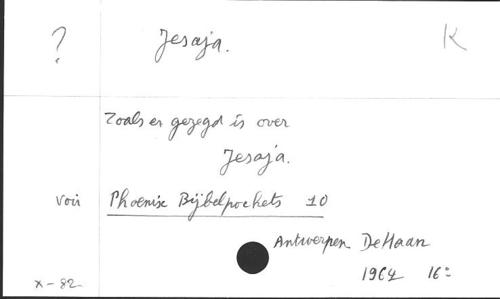 ?
Jesaja.
K
Zoals er gezegd is over
Jesaja.
voir Phoenix Bijbelpockets 10
Antwerpen De Haan
1964 16°
X-82